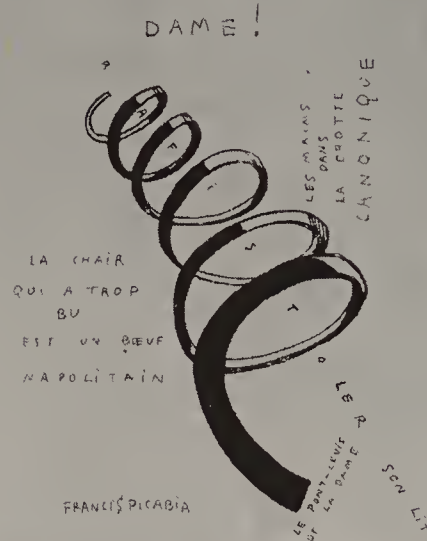 DAME!
LES MAINS
DANS
LA CROTTE
CANONIQUE
LA CHAIR
QUI A TROP
BU
EST UN BŒUF
NAPOLITAIN
LE PONT-LEVIS
LA DAME
SON LIT
FRANCIS PICABIA